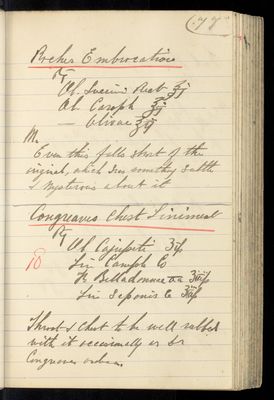 77
Roche's Embrocation
Rx
Ol. Succini Rect ʒj
Ol. Caryoph ʒj
— Olivae ʒij
M.
Even this falls short of the
original, which has something subtle
& mysterious about it
Congreaves Chest Liniment
Rx
Ol Cajuputi
18
Lin Camph Co
Tr Belladonnae aa
Lin Saponis Co
Throat & Chest to be well rubbed
with it occasionally as per
Congreaves